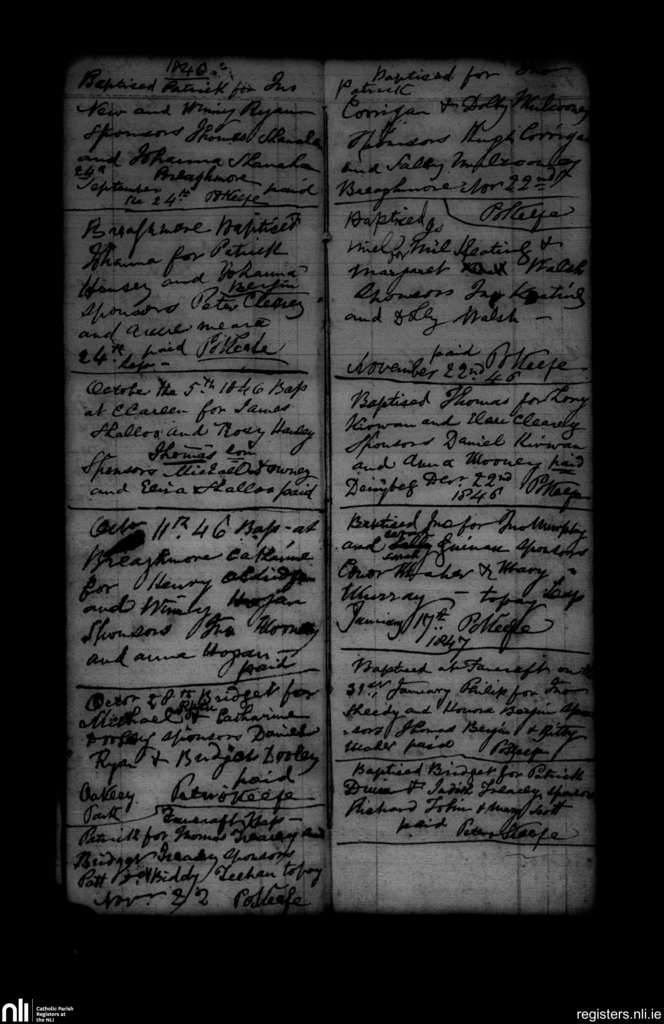 1846
Baptised Patrick for Jno
New and Winny Ryan
Sponsors Thomas Shanahan
and Johanna Shanahan
Breaghmore paid
24th
September
the 24th P OKeefe
Breaghmore Baptised
Johanna for Patrick
Hensey and Johanna
Bergin
Sponsors Peter Clearey
and meara
24th paid P OKeefe
Sep
October the 5th 1846 Bap
at for James
Shalloo and Rosy Hanley
Thomas son
Sponsors Michael Downey
and Eliza Shalloo paid
Octor 11th 46 Bap - at
Breaghmore Catharine
for Henry
and Winny Hogan
Sponsors Jno Mooney
and anna Hogan -
paid
Octor 28th Bridget for
Michael Ryan & Catharine
Dooley Sponsors Daniel
Ryan & Bridget Dooley
paid
Oakley Patrick OKeefe
Park
Fancroft Bap -
Patrick for Thomas Treacey and
Bridget Treacey Sponsors
Patt & Biddy Teehan to pay
Novr 22 P OKeefe
Baptised for Jno
Patrick
Corrigan & Dolly Mulrooney
Sponsors Hugh Corrigan
and Sally Mulrooney
Breaghmore Nor 22nd
P OKeefe
Baptised
for Mil Keating &
Margaret Walsh
Sponsors Jno Keating
and Dolly Walsh -
paid P OKeefe
November 22nd
46
Baptised Thomas for
Kirwan and Clearey
Sponsors Daniel Kirwan
and Anna Mooney paid
Decr 22nd
1846 P OKeefe
Baptised Jno for Jno Murphy
and Guinan Sponsors
Conor Maher & Mary
Murray - to pay Leap
January 17th P OKeefe
1847
Baptised at Fancroft on the
31st January Philip for Jno
Sheedy and Honora Bergin Spon
sors Thomas Bergin & Kitty
Maher paid P OKeefe
Baptised Bridget for Patrick
& Judith Treacey, sponsors
Richard Tobin & Mary Scott
paid Peter OKeefe
nli
Catholic Parish
Registers at
the NLI
registers.nli.ie